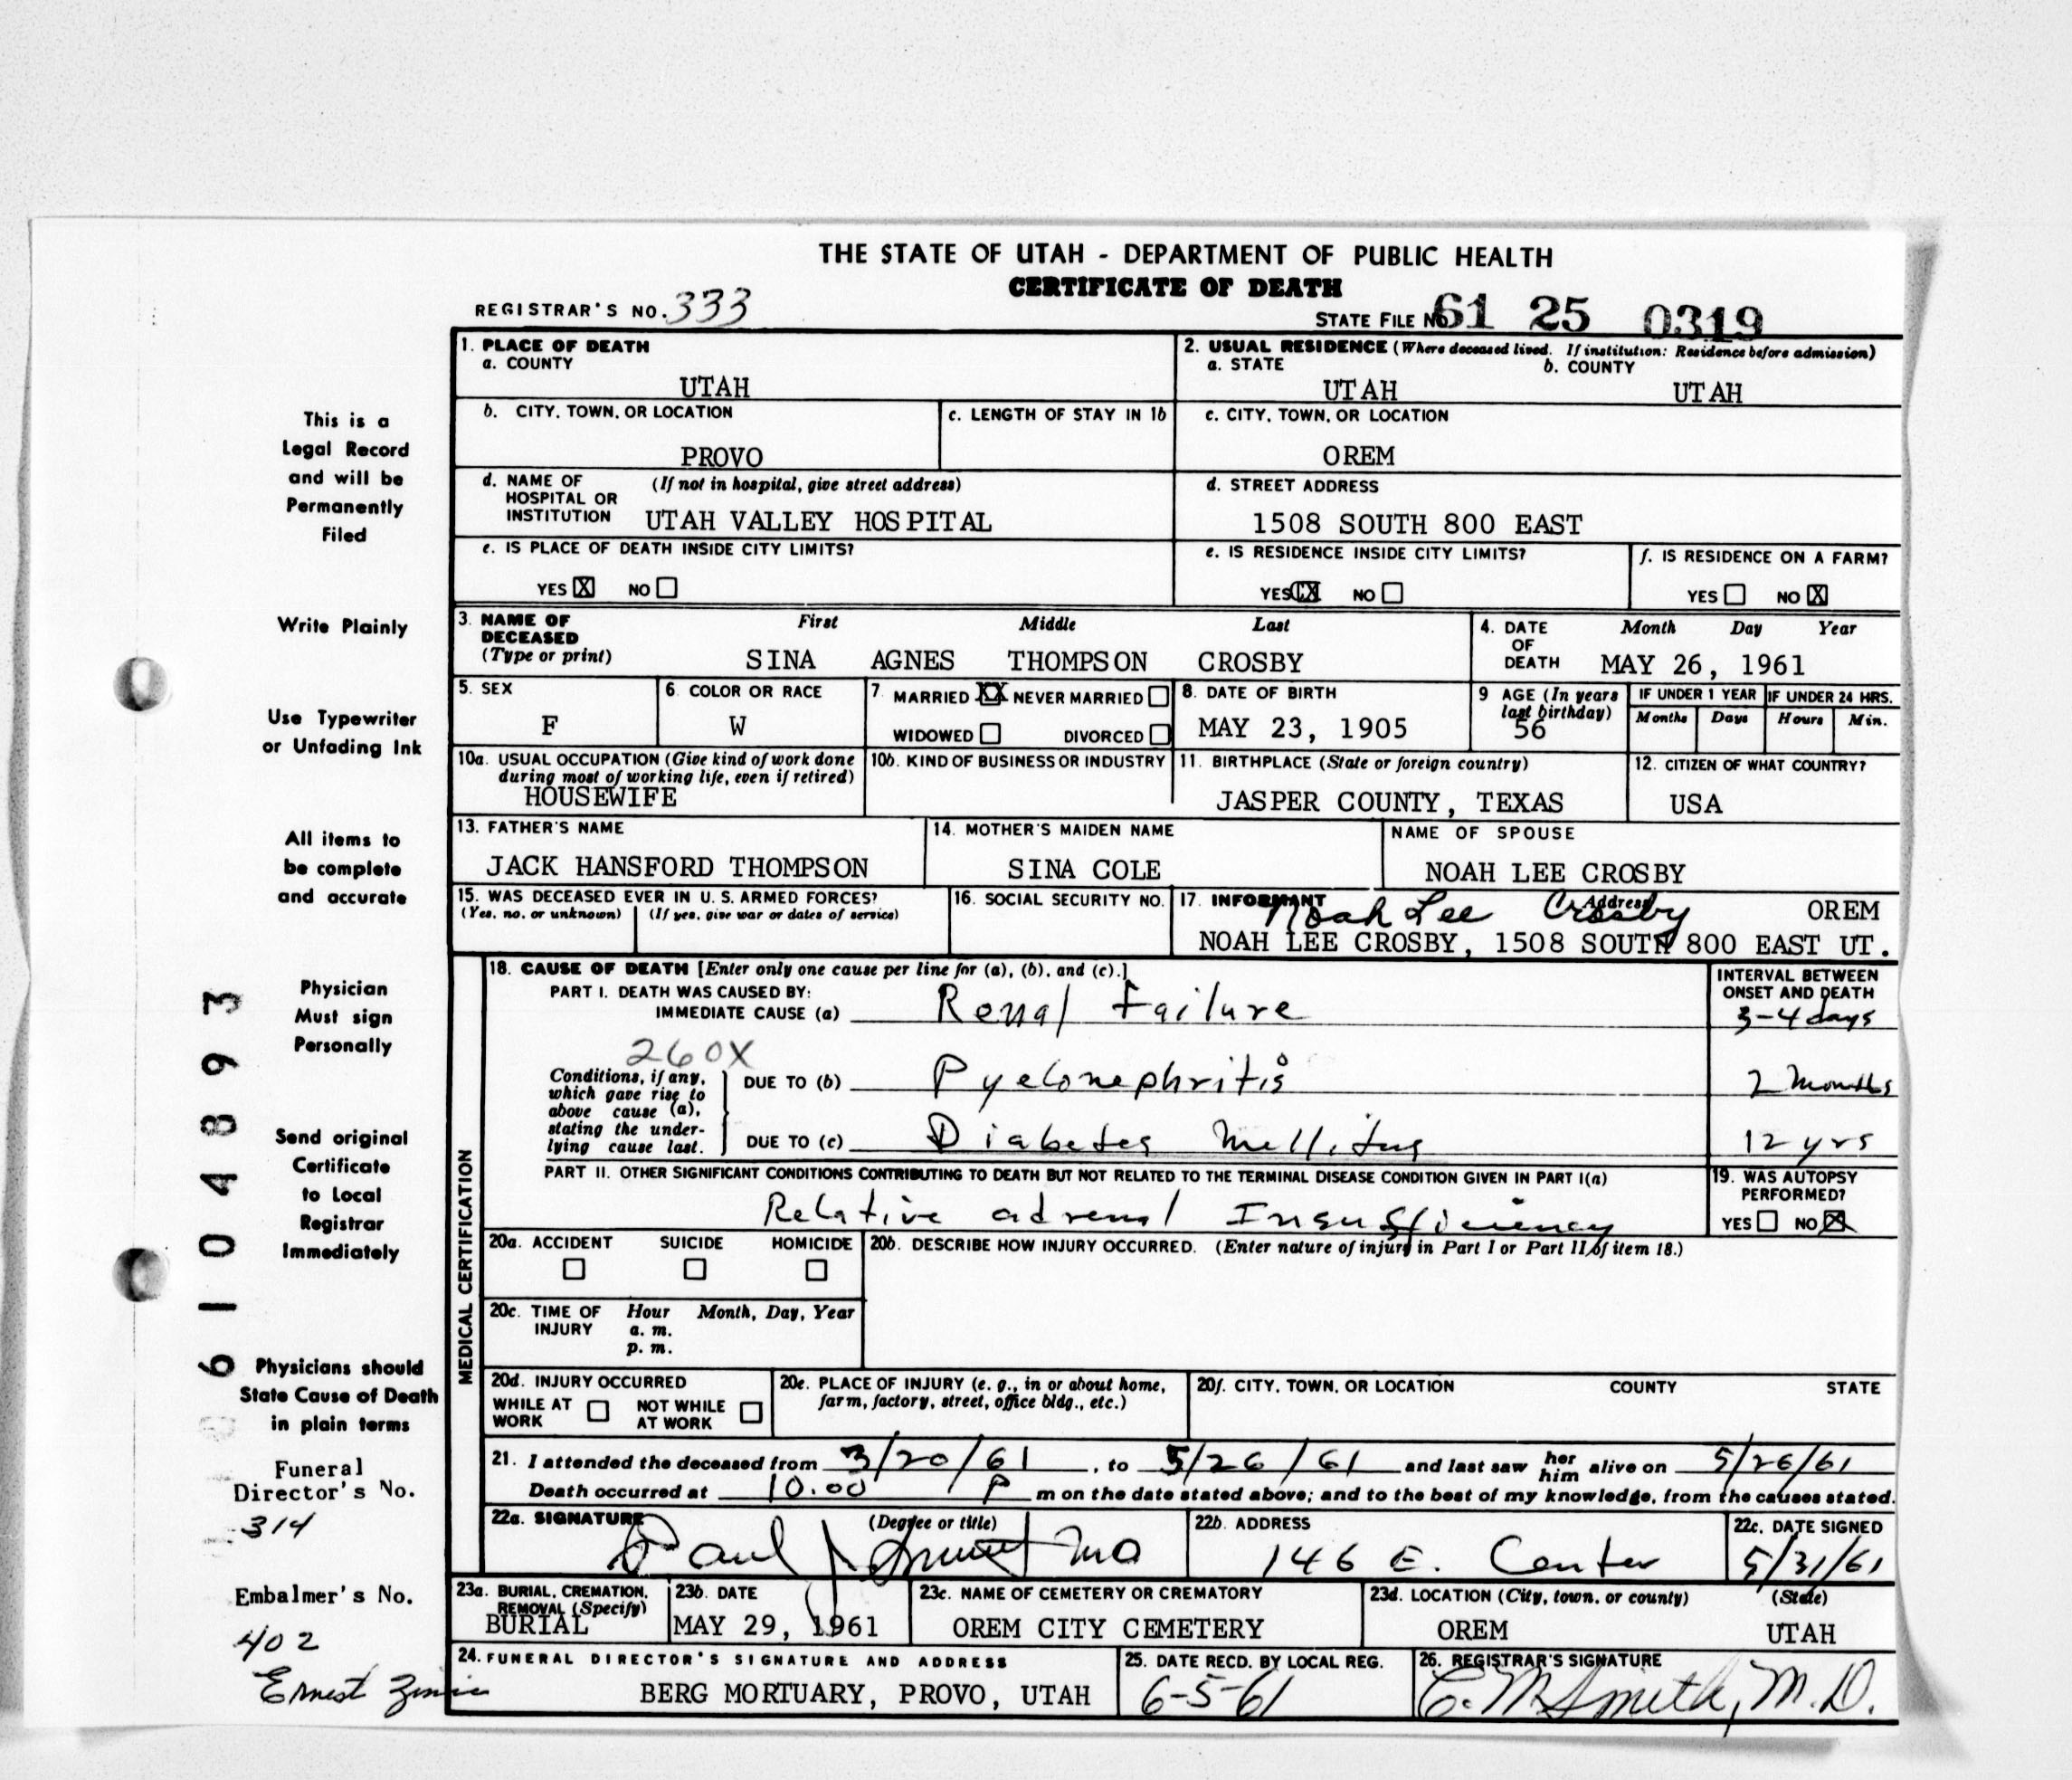 THE STATE OF UTAH - DEPARTMENT OF PUBLIC HEALTH
CERTIFICATE OF DEATH
REGISTRAR'S NO. 333
STATE FILE NO. 61 25 0319
1. PLACE OF DEATH
a. COUNTY
UTAH
2. USUAL RESIDENCE (Where deceased lived. If institution: Residence before admission)
a. STATE b. COUNTY
UTAH UTAH
b. CITY, TOWN, OR LOCATION
PROVO
c. LENGTH OF STAY IN 1b
c. CITY, TOWN, OR LOCATION
OREM
d. NAME OF (If not in hospital, give street address)
HOSPITAL OR
INSTITUTION UTAH VALLEY HOSPITAL
d. STREET ADDRESS
1508 SOUTH 800 EAST
e. IS PLACE OF DEATH INSIDE CITY LIMITS?
YES X NO
e. IS RESIDENCE INSIDE CITY LIMITS?
YES X NO
f. IS RESIDENCE ON A FARM?
YES NO X
3. NAME OF First Middle Last
DECEASED
(Type or print) SINA AGNES THOMPSON CROSBY
4. DATE Month Day Year
OF
DEATH MAY 26, 1961
5. SEX
F
6. COLOR OR RACE
W
7. MARRIED XX NEVER MARRIED
WIDOWED DIVORCED
8. DATE OF BIRTH
MAY 23, 1905
9 AGE (In years
last birthday)
56
IF UNDER 1 YEAR IF UNDER 24 HRS.
Months Days Hours Min.
10a. USUAL OCCUPATION (Give kind of work done
during most of working life, even if retired)
HOUSEWIFE
10b. KIND OF BUSINESS OR INDUSTRY
11. BIRTHPLACE (State or foreign country)
JASPER COUNTY, TEXAS
12. CITIZEN OF WHAT COUNTRY?
USA
13. FATHER'S NAME
JACK HANSFORD THOMPSON
14. MOTHER'S MAIDEN NAME
SINA COLE
NAME OF SPOUSE
NOAH LEE CROSBY
15. WAS DECEASED EVER IN U. S. ARMED FORCES?
(Yes, no, or unknown) (If yes, give war or dates of service)
16. SOCIAL SECURITY NO.
17. INFORMANT Address
Noah Lee Crosby OREM
NOAH LEE CROSBY, 1508 SOUTH 800 EAST UT.
MEDICAL CERTIFICATION
18. CAUSE OF DEATH [Enter only one cause per line for (a), (b), and (c).]
PART I. DEATH WAS CAUSED BY:
IMMEDIATE CAUSE (a) Renal Failure
INTERVAL BETWEEN
ONSET AND DEATH
3-4 days
260X
Conditions, if any,
which gave rise to
above cause (a),
stating the under-
lying cause last.
DUE TO (b) Pyelonephritis 2 months
DUE TO (c) Diabetes Mellitus 12 yrs
PART II. OTHER SIGNIFICANT CONDITIONS CONTRIBUTING TO DEATH BUT NOT RELATED TO THE TERMINAL DISEASE CONDITION GIVEN IN PART I(a)
Relative adrenal Insufficiency
19. WAS AUTOPSY
PERFORMED?
YES NO X
20a. ACCIDENT SUICIDE HOMICIDE
20b. DESCRIBE HOW INJURY OCCURRED. (Enter nature of injury in Part I or Part II of item 18.)
20c. TIME OF Hour Month, Day, Year
INJURY a. m.
p. m.
20d. INJURY OCCURRED
WHILE AT NOT WHILE
WORK AT WORK
20e. PLACE OF INJURY (e. g., in or about home,
farm, factory, street, office bldg., etc.)
20f. CITY, TOWN, OR LOCATION COUNTY STATE
21. I attended the deceased from 3/20/61, to 5/26/61 and last saw her him alive on 5/26/61
Death occurred at 10:00 P m on the date stated above; and to the best of my knowledge, from the causes stated.
22a. SIGNATURE (Degree or title)
Paul J MD
22b. ADDRESS
146 E. Center
22c. DATE SIGNED
5/31/61
23a. BURIAL, CREMATION,
REMOVAL (Specify)
BURIAL
23b. DATE
MAY 29, 1961
23c. NAME OF CEMETERY OR CREMATORY
OREM CITY CEMETERY
23d. LOCATION (City, town, or county) (State)
OREM UTAH
24. FUNERAL DIRECTOR'S SIGNATURE AND ADDRESS
BERG MORTUARY, PROVO, UTAH
25. DATE RECD. BY LOCAL REG.
6-5-61
26. REGISTRAR'S SIGNATURE
C. M. Smith, M.D.
This is a
Legal Record
and will be
Permanently
Filed
Write Plainly
Use Typewriter
or Unfading Ink
All items to
be complete
and accurate
Physician
Must sign
Personally
Send original
Certificate
to Local
Registrar
Immediately
Physicians should
State Cause of Death
in plain terms
Funeral
Director's No.
314
Embalmer's No.
402
Ernest
6104893